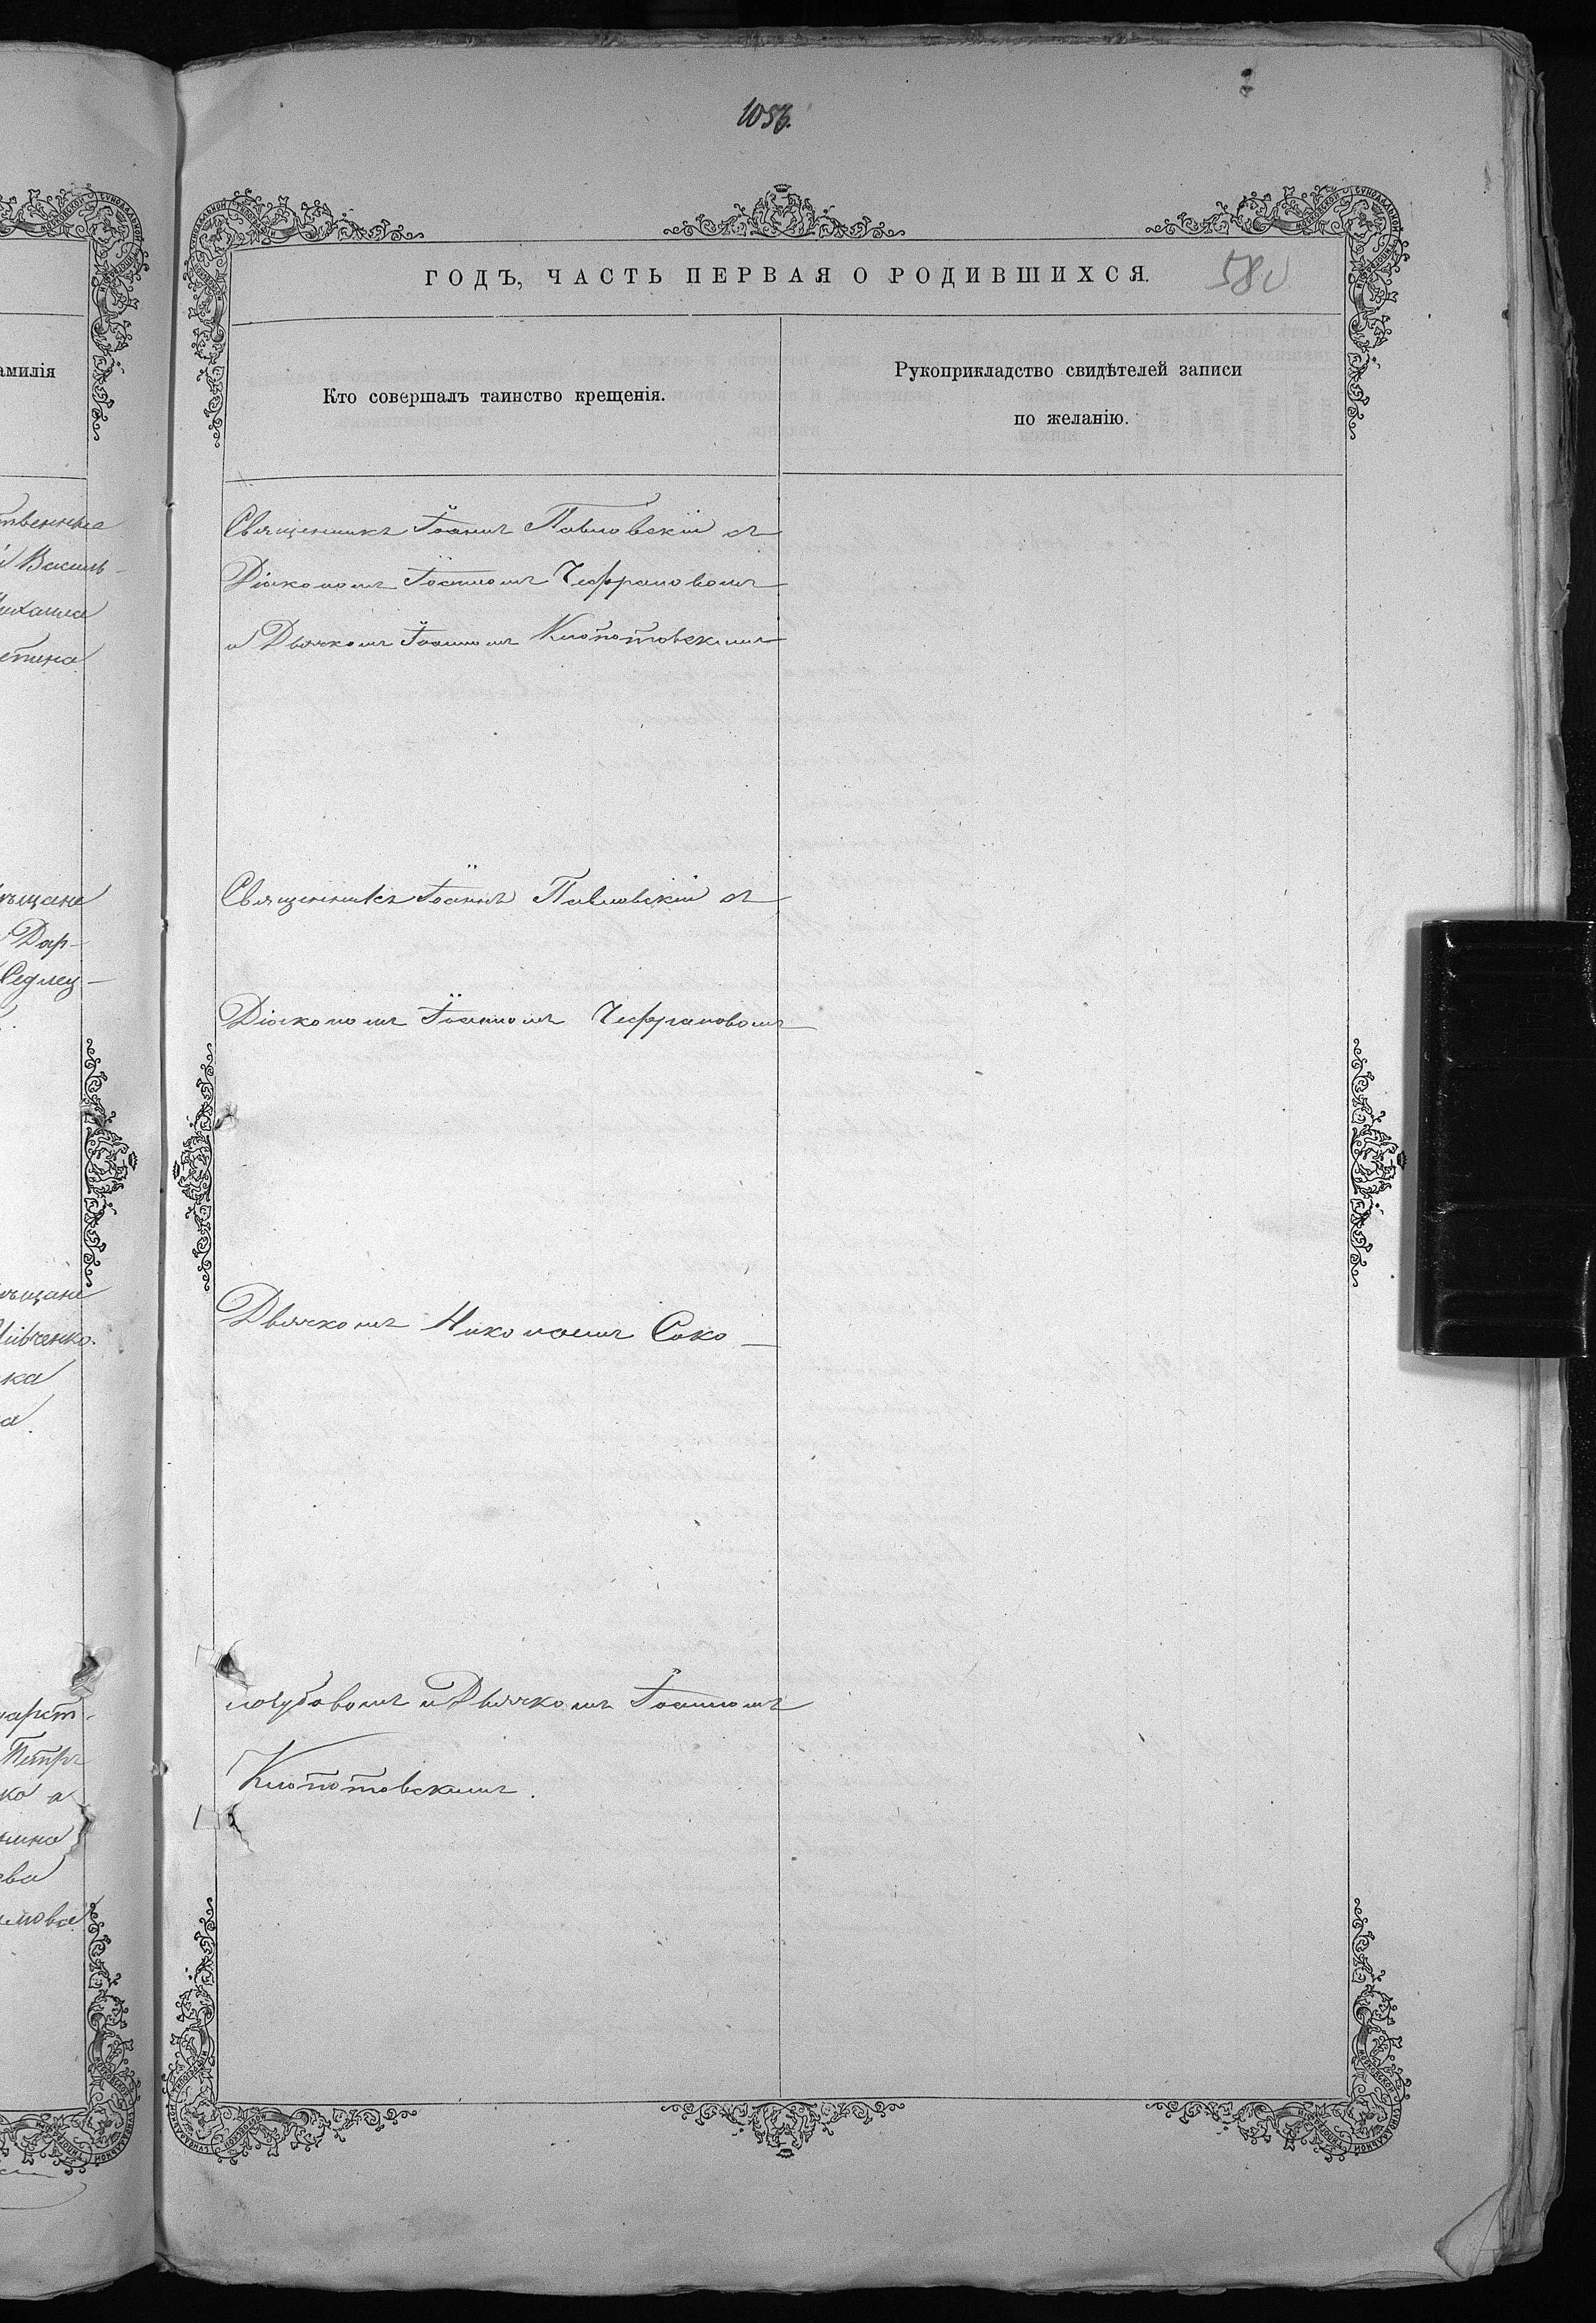 1056.
ГОДЪ, ЧАСТЬ ПЕРВАЯ О РОДИВШИХСЯ.
580
амилія
Кто совершалъ таинство крещенія.
Рукоприкладство свидѣтелей записи
по желанію.
Священникъ Іоаннъ Павловскій съ
Діакономъ Іоанномъ Чефрановомъ
и Дьячкомъ Іоанномъ Клопотовскимъ
Священникъ Іоаннъ Павловскій съ
Діакономъ Іоанномъ Чефрановомъ
Дьячкомъ Николаемъ Соко-
и Дьячкомъ Іоанномъ
Клопотовскимъ.
твенные
Василь-
ихаила
ѣщане
Дар-
Седлец-
ѣщане
ка
а.
дарст-
Петръ
ко а
ева